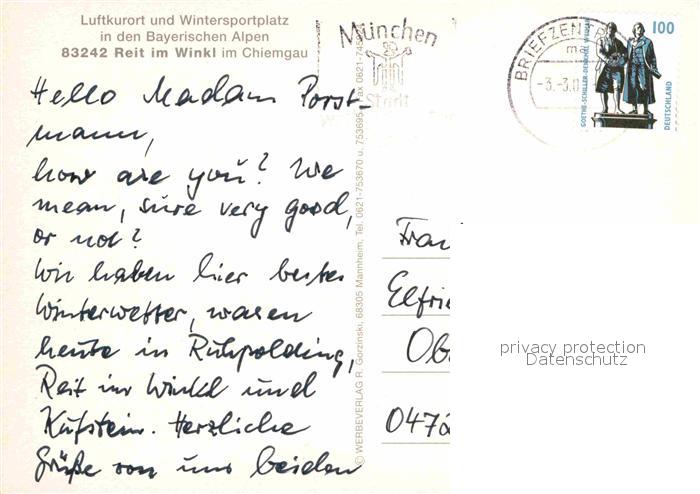 Luftkurort und Wintersportplatz
in den Bayerischen Alpen
83242 Reit im Winkl im Chiemgau
Hello Madam Porst-
mann,
how are you? We
mean, sure very good,
or not?
Wir haben hier bestes
Winterwetter, waren
heute in Ruhpolding,
Reit im Winkl und
Kufstein. Herzliche
Grüße von uns beiden
© WERBEVERLAG R. Gorzinski, 68305 Mannheim, Tel. 0621-753670 u. 753695, Fax 0621-745
München
Stadt
BRIEFZENTR
-3.-3.0
100
GOETHE-SCHILLER-DENKMAL WEIMAR
DEUTSCHLAND
Frau
Elfrie
Ob
0472
privacy protection
Datenschutz